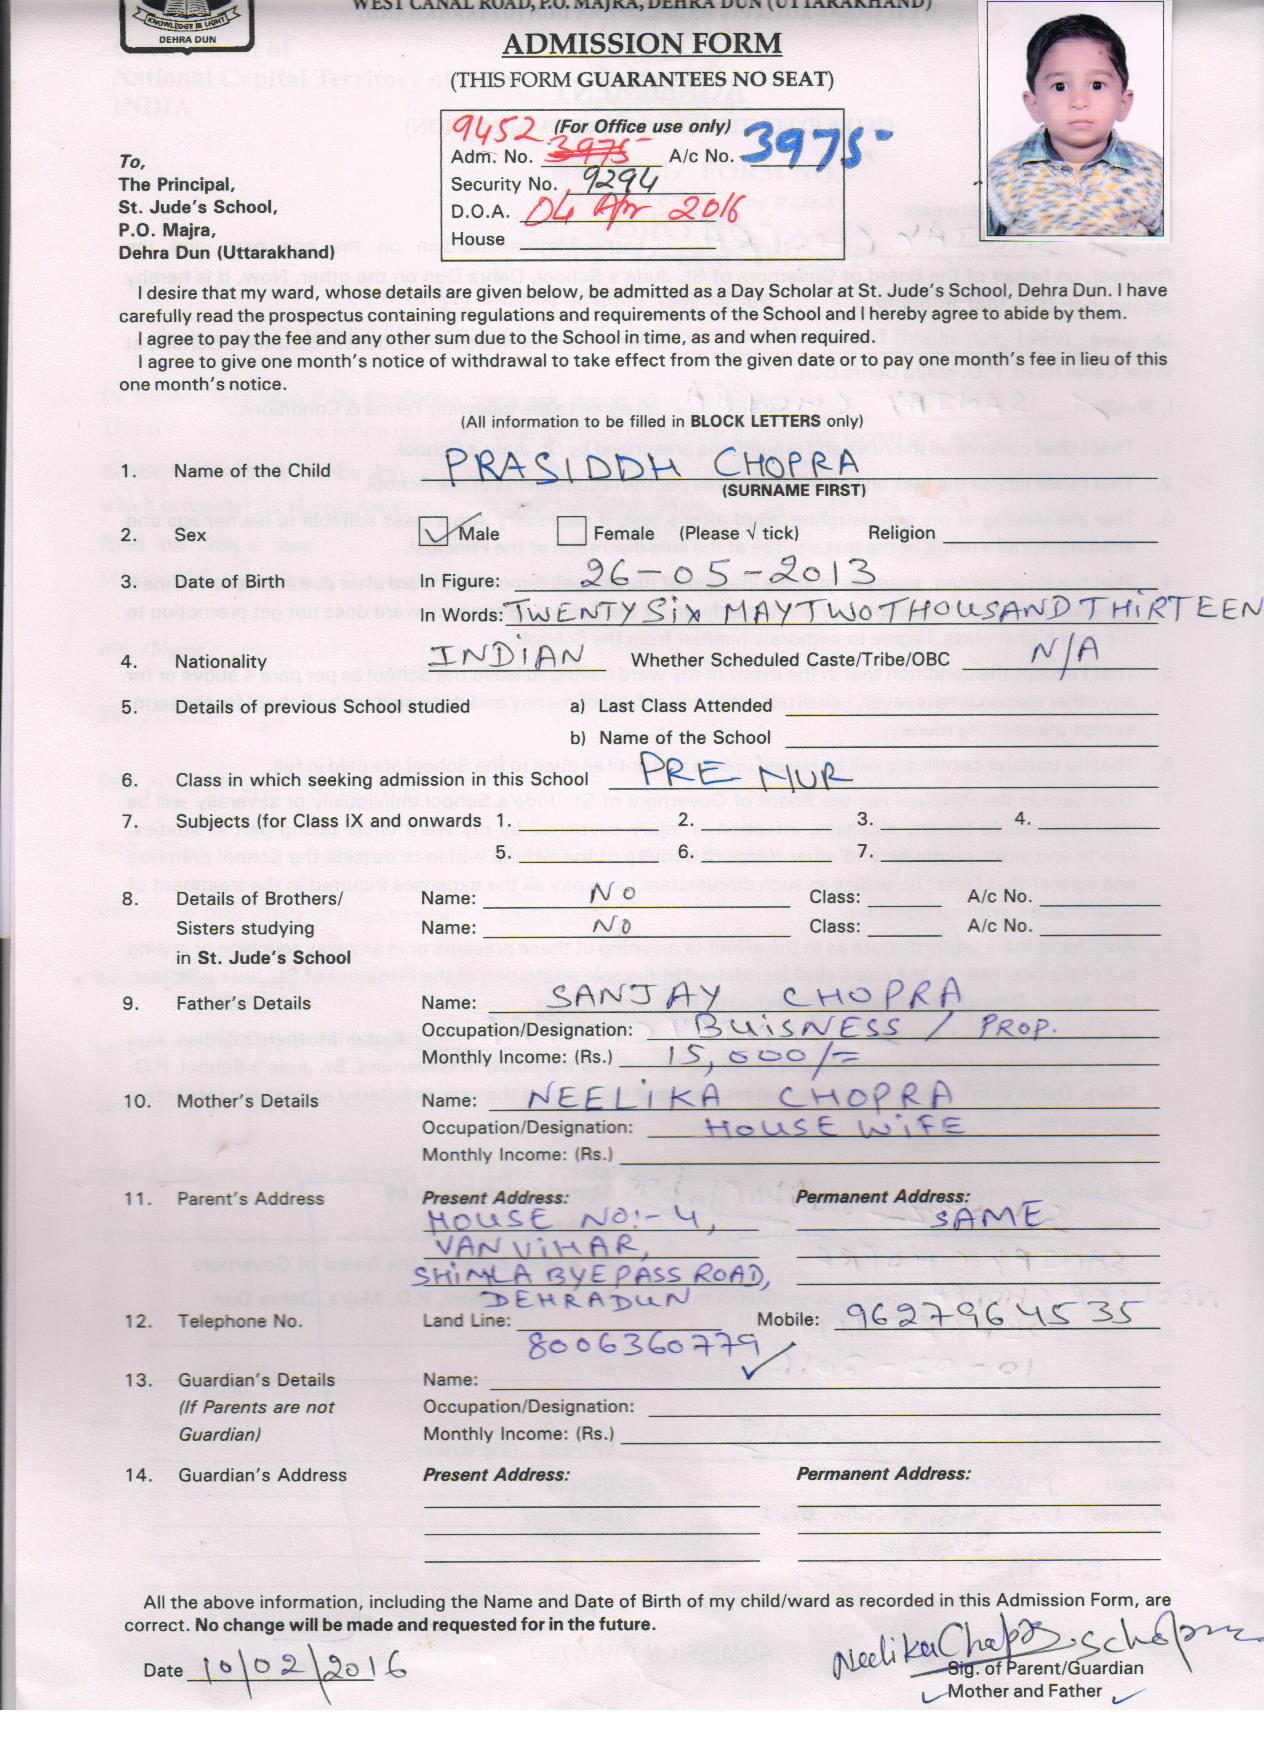 WEST CANAL ROAD, P.O. MAJRA, DEHRA DUN (UTTARAKHAND)
KNOWLEDGE IS LIGHT
DEHRA DUN
ADMISSION FORM
(THIS FORM GUARANTEES NO SEAT)
9452 (For Office use only)
Adm. No. 3975 A/c No. 3975
Security No. 9294
D.O.A. 04 Apr 2016
House
To,
The Principal,
St. Jude's School,
P.O. Majra,
Dehra Dun (Uttarakhand)
I desire that my ward, whose details are given below, be admitted as a Day Scholar at St. Jude's School, Dehra Dun. I have
carefully read the prospectus containing regulations and requirements of the School and I hereby agree to abide by them.
I agree to pay the fee and any other sum due to the School in time, as and when required.
I agree to give one month's notice of withdrawal to take effect from the given date or to pay one month's fee in lieu of this
one month's notice.
(All information to be filled in BLOCK LETTERS only)
1. Name of the Child PRASIDDH CHOPRA
(SURNAME FIRST)
2. Sex Male Female (Please √ tick) Religion
3. Date of Birth In Figure: 26-05-2013
In Words: TWENTY SIX MAY TWO THOUSAND THIRTEEN
4. Nationality INDIAN Whether Scheduled Caste/Tribe/OBC N/A
5. Details of previous School studied a) Last Class Attended
b) Name of the School
6. Class in which seeking admission in this School PRE NUR
7. Subjects (for Class IX and onwards 1. 2. 3. 4.
5. 6. 7.
8. Details of Brothers/ Name: NO Class: A/c No.
Sisters studying Name: NO Class: A/c No.
in St. Jude's School
9. Father's Details Name: SANJAY CHOPRA
Occupation/Designation: BUISNESS / PROP.
Monthly Income: (Rs.) 15,000/=
10. Mother's Details Name: NEELIKA CHOPRA
Occupation/Designation: HOUSE WIFE
Monthly Income: (Rs.)
11. Parent's Address Present Address: Permanent Address:
HOUSE NO:- 4, SAME
VAN VIHAR,
SHIMLA BYE PASS ROAD,
DEHRADUN
12. Telephone No. Land Line: Mobile: 9627964535
8006360779
13. Guardian's Details Name:
(If Parents are not Occupation/Designation:
Guardian) Monthly Income: (Rs.)
14. Guardian's Address Present Address: Permanent Address:
All the above information, including the Name and Date of Birth of my child/ward as recorded in this Admission Form, are
correct. No change will be made and requested for in the future.
Neelika Chopra
Date 10/02/2016 Sig. of Parent/Guardian
Mother and Father